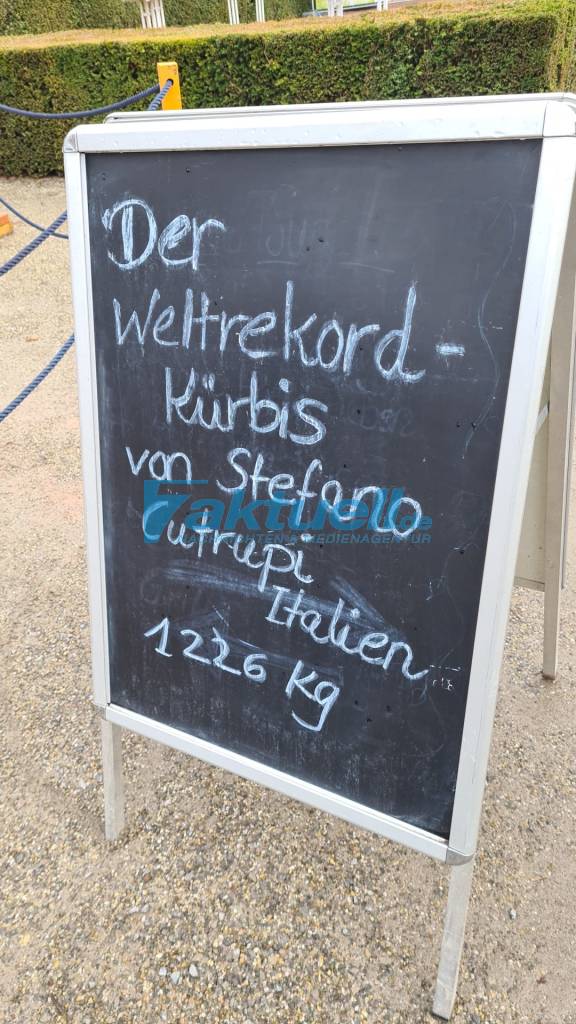 Der
Weltrekord-
Kürbis
von Stefano
Cutrupi
Italien
1226 Kg
7aktuell.de
NACHRICHTEN & MEDIENAGENTUR